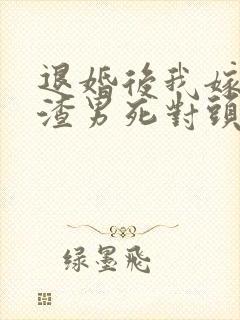 退婚後我嫁
渣男死對頭
绿墨飛